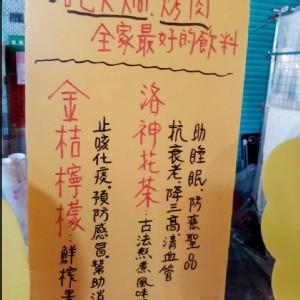 吃火鍋、烤肉
全家最好的飲料
助睡眠、防癌聖品
抗衰老、降三高清血管
洛神花茶：古法熬煮風味
止咳化痰。預防感冒。幫助消
金桔檸檬：鮮榨果